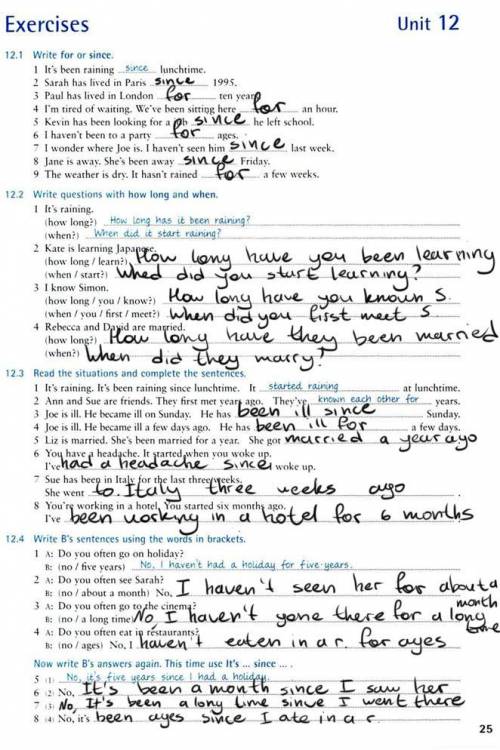 Exercises Unit 12
12.1 Write for or since.
1 It's been raining since lunchtime.
2 Sarah has lived in Paris since 1995.
3 Paul has lived in London for ten year
4 I'm tired of waiting. We've been sitting here for an hour.
5 Kevin has been looking for a job since he left school.
6 I haven't been to a party for ages.
7 I wonder where Joe is. I haven't seen him since last week.
8 Jane is away. She's been away since Friday.
9 The weather is dry. It hasn't rained for a few weeks.
12.2 Write questions with how long and when.
1 It's raining.
(how long?) How long has it been raining?
(when?) When did it start raining?
2 Kate is learning Japanese.
(how long / learn?) How long have you been learning
(when / start?) Whed did you start learning?
3 I know Simon.
(how long / you / know?) How long have you known S.
(when / you / first / meet?) When did you first meet S.
4 Rebecca and David are married.
(how long?) How long have they been married
(when?) When did they marry?
12.3 Read the situations and complete the sentences.
1 It's raining. It's been raining since lunchtime. It started raining at lunchtime.
2 Ann and Sue are friends. They first met years ago. They've known each other for years.
3 Joe is ill. He became ill on Sunday. He has been ill since Sunday.
4 Joe is ill. He became ill a few days ago. He has been ill for a few days.
5 Liz is married. She's been married for a year. She got married a year ago
6 You have a headache. It started when you woke up.
I've had a headache since I woke up.
7 Sue has been in Italy for the last three weeks.
She went to Italy three weeks ago
8 You're working in a hotel. You started six months ago.
I've been working in a hotel for 6 months
12.4 Write B's sentences using the words in brackets.
1 A: Do you often go on holiday?
B: (no / five years) No, I haven't had a holiday for five years.
2 A: Do you often see Sarah?
B: (no / about a month) No, I haven't seen her for about a month
3 A: Do you often go to the cinema?
B: (no / a long time) No, I haven't gone there for a long time
4 A: Do you often eat in restaurants?
B: (no / ages) No, I haven't eaten in a r. for ages
Now write B's answers again. This time use It's ... since ... .
5 (1) No, it's five years since I had a holiday.
6 (2) No, It's been a month since I saw her
7 (3) No, It's been a long time since I went there
8 (4) No, it's been ages since I ate in a r.
25